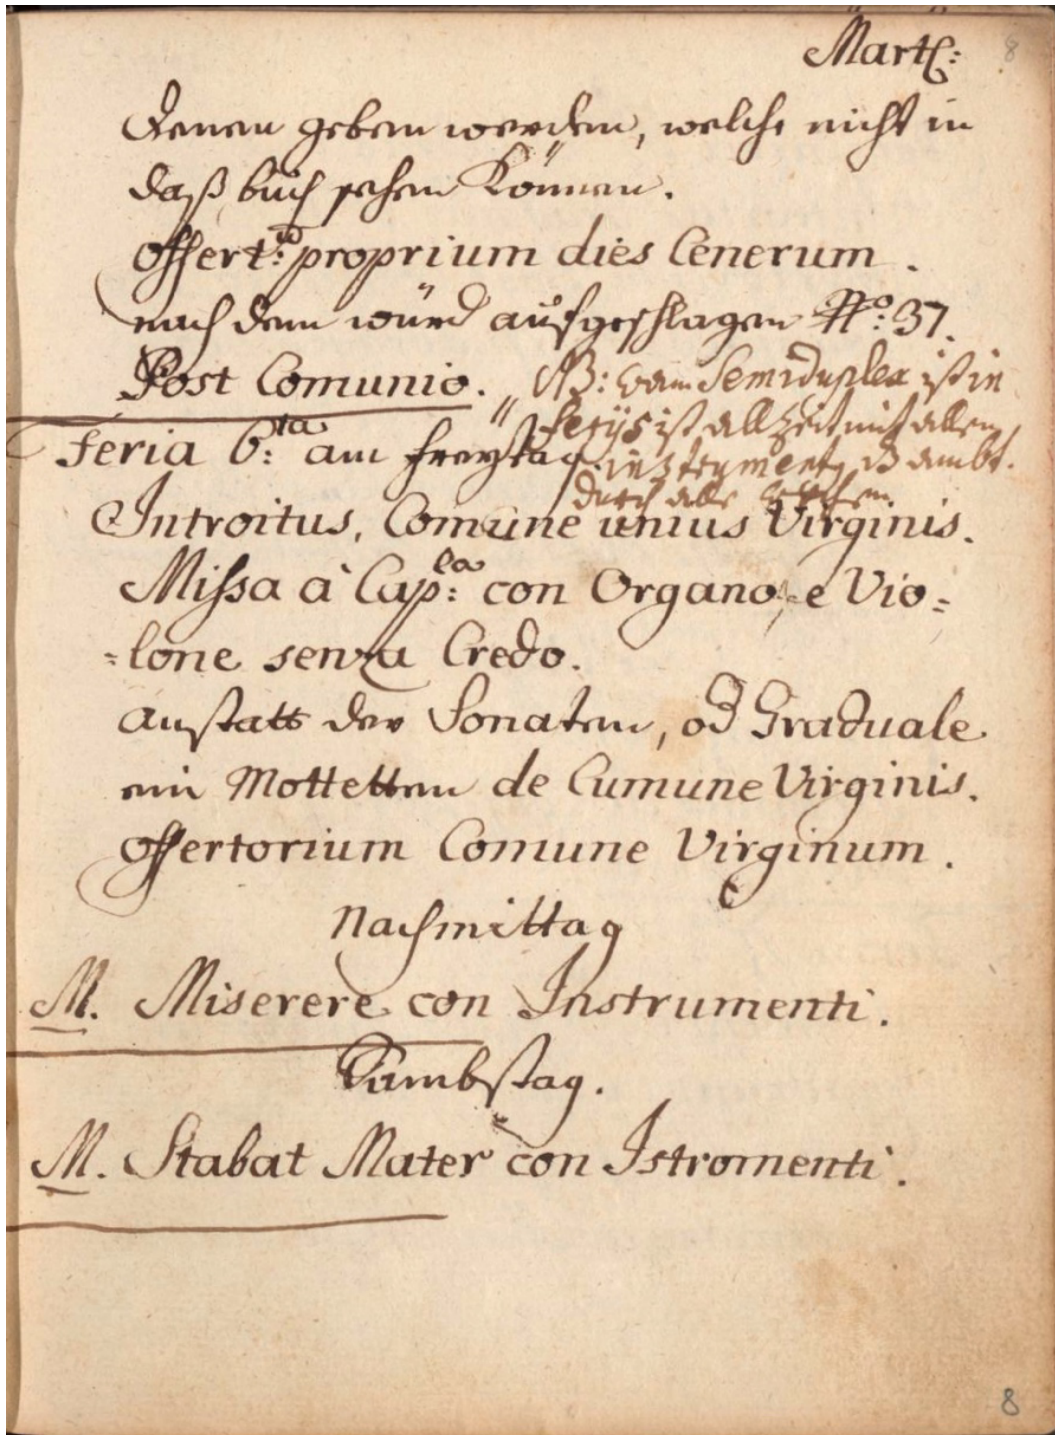 Marty: 8
denen geben werden, welche nicht in
daß buch sehen Können.
Offert:um proprium dies Cenerum.
nach dem würd aufgeschlagen No: 37.
Post Comunio. NB: wan Semiduplex ist in
ferijs ist allzeit mit allen
Feria 6:ta am Freytag. instrument ambt.
durch alle
Introitus, Comune unius Virginis.
Missa à Cap:la con Organo, e Vio=
=lone senza Credo.
anstatt der Sonaten, od Graduale
ein Mottetten de Cumune Virginis.
Offertorium Comune Virginum.
Nachmittag
M. Miserere con Instrumenti.
Sambstag.
M. Stabat Mater con Istromenti.
8